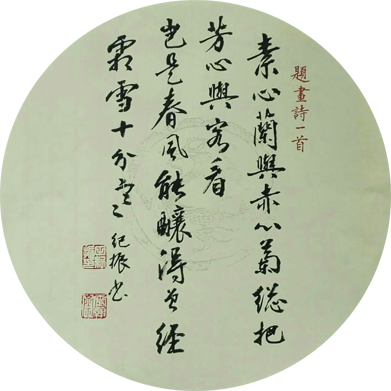 題畫詩一首
素心蘭與赤心菊總把
芳心與客看
豈是春風能釀得曾經
霜雪十分寒
紀振書